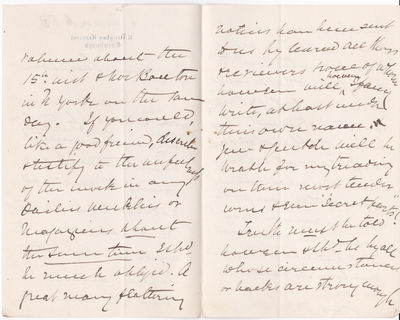 volume about the
15th inst & Bouton
in N York on the same
day. If you could,
like a good friend,
& testify to the usefulness
of the work in any
Dailies weeklies or
Magazines about
the same time I shd
be much obliged. A
great many flattering
notices have been sent
to us by learned
& reviewers of whom
however will, however,
write, at least under
their own names.
will be
wrath for my treading
on their most tender
corns & "Secret
Truth must be told
however & shd be by all
whose circumstances
or backs are strong enough